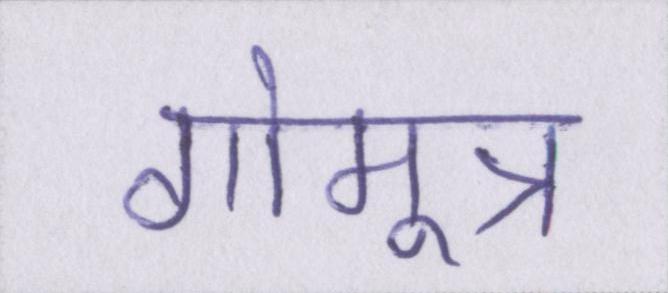 गोमूत्र